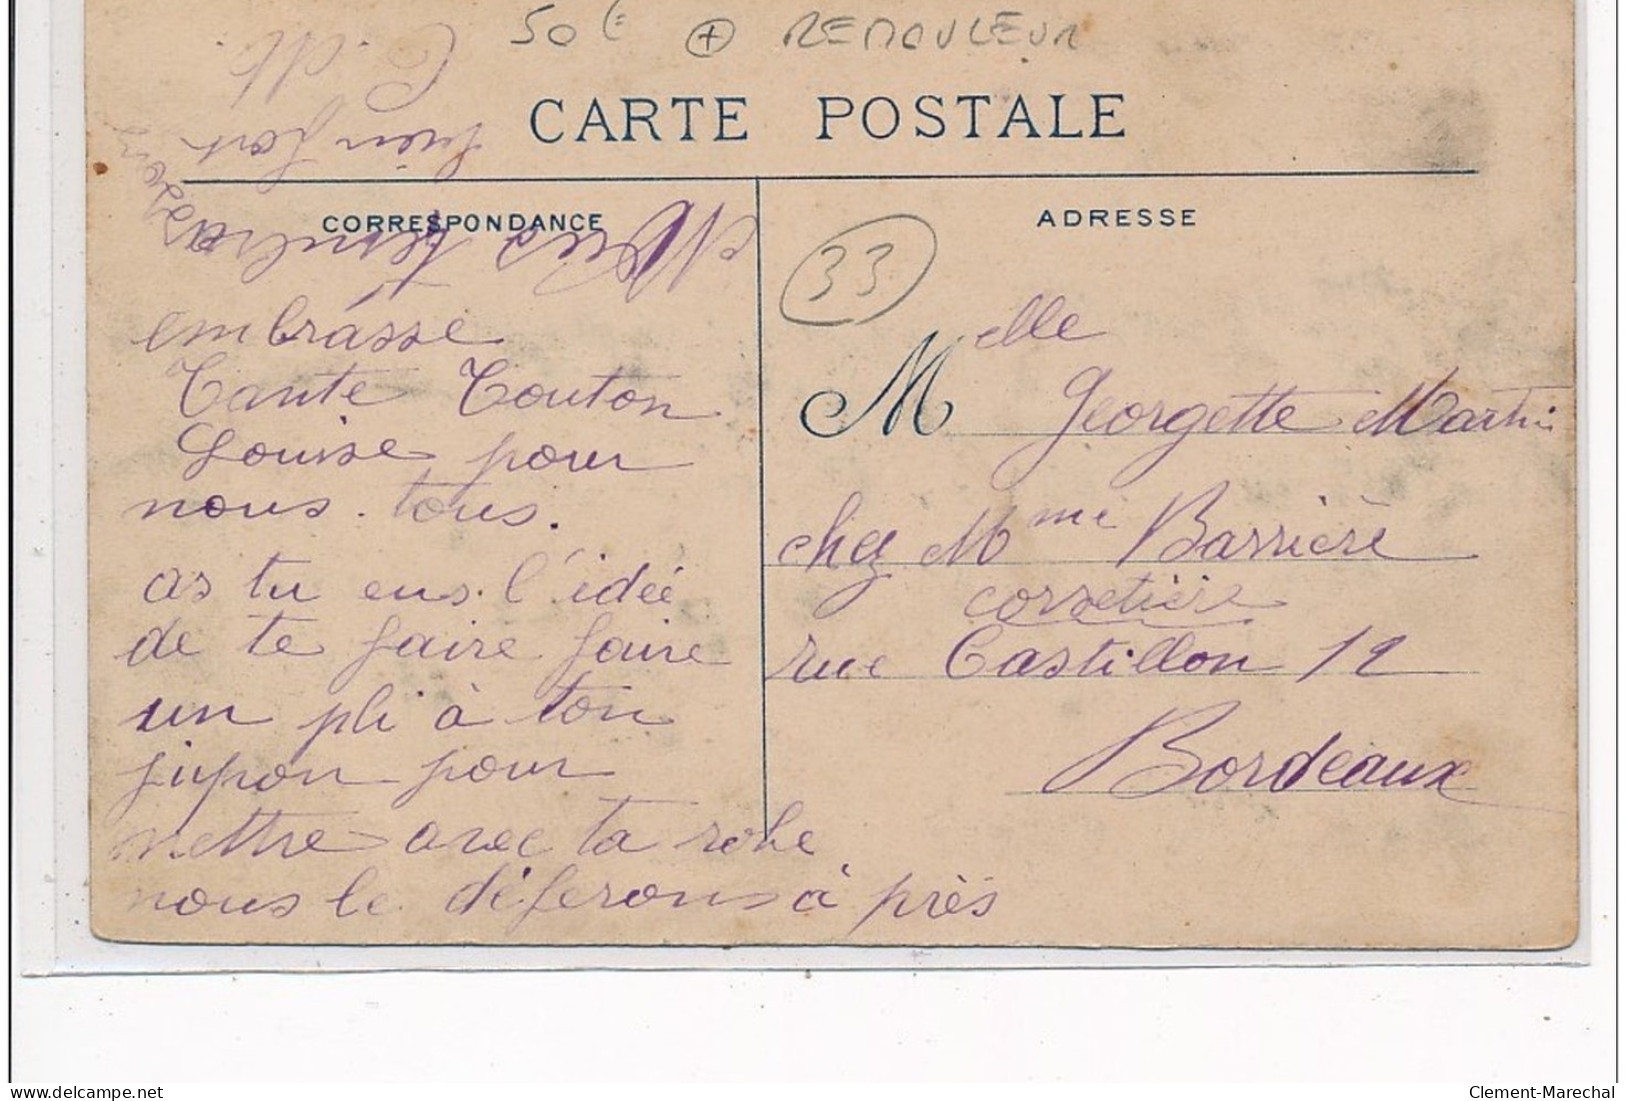 50€ + REMOULEUR
CARTE POSTALE
CORRESPONDANCE
ADRESSE
33
embrasse
Tante Touton
Louise pour
nous. tous.
as tu eus l'idée
de te faire faire
un pli à ton
jupon pour
mettre avec ta robe
nous le déferons à près
Melle
Georgette Martin
chez Mme Barrière
corsetière
rue Castillon 12
Bordeaux
Nous t'embrassons
bien fort
C. M.
Clement-Marechal